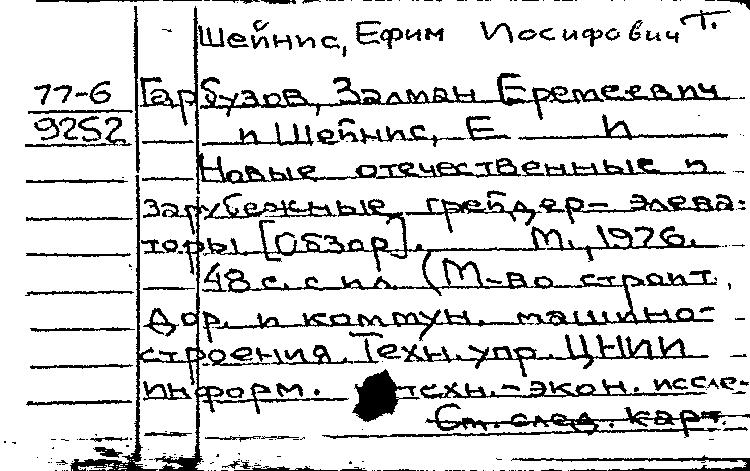 Шейнис, Ефим Иосифович Т.
77-6 Гарбузов, Залман Еремеевич
9252 и Шейнис, Е И
Новые отечественные и
зарубежные грейдер-элева-
торы [Обзор]. М., 1976.
48 с. с ил. (М-во строит.,
дор. и коммун. машино-
строения. Техн. упр. ЦНИИ
информ. техн.-экон. иссле-
См. след. карт.